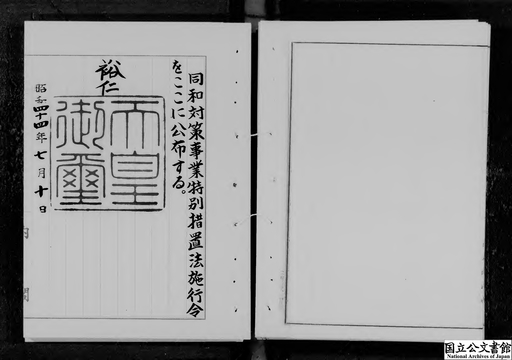 同和対策事業特別措置法施行令
をここに公布する。
裕仁
天皇
御璽
昭和四十四年七月十日
内閣
国立公文書館
National Archives of Japan